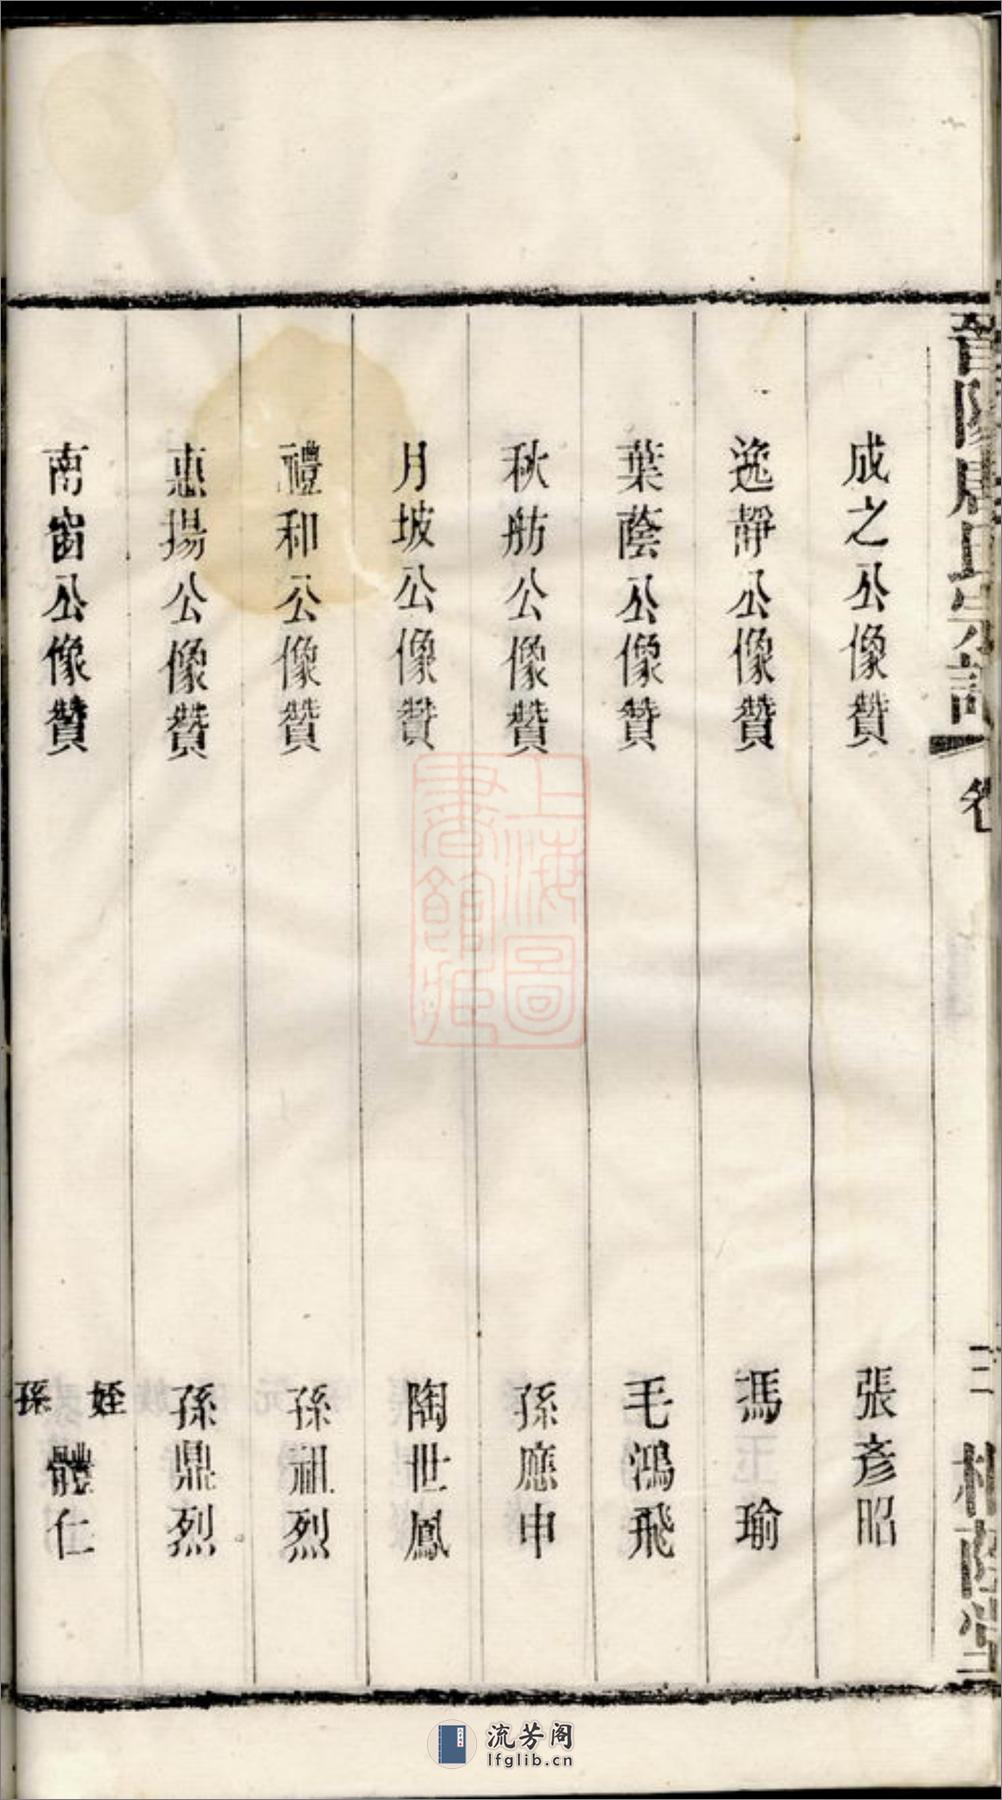 成之公像贊 張彥昭
逸靜公像贊 馮瑜
葉蔭公像贊 毛鴻飛
秋舫公像贊 孫應申
月坡公像贊 陶世鳳
禮和公像贊 孫祖烈
惠揚公像贊 孫鼎烈
南窗公像贊 姪孫體仁
卷
三
上海圖
書館藏
流芳阁
lfglib.cn